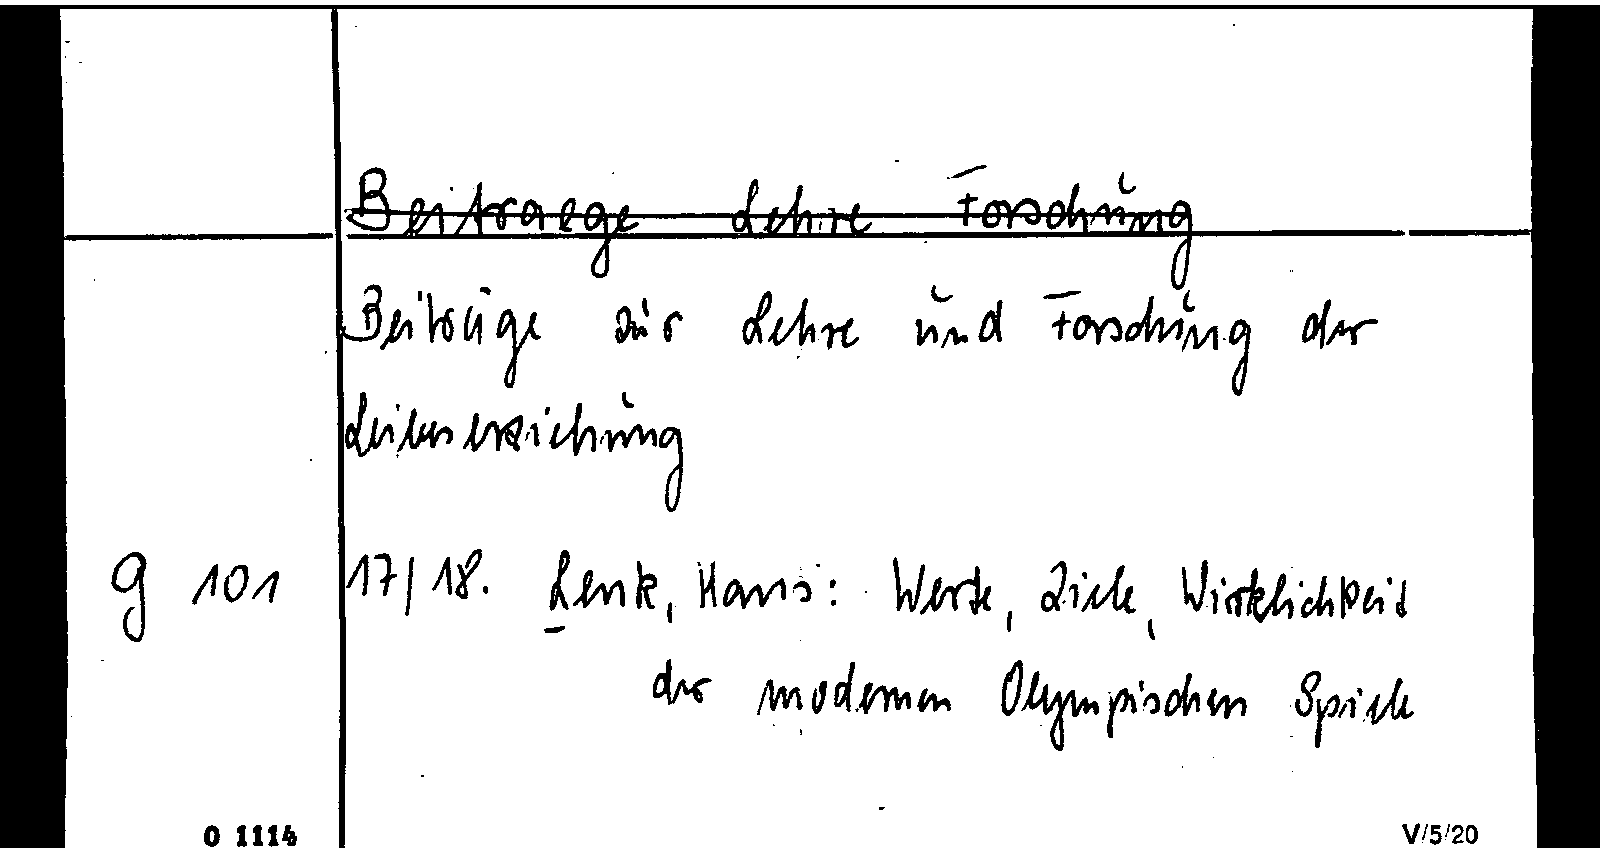 Beitraege Lehre Forschung
Beiträge zur Lehre und Forschung der
Leibeserziehung
g 101 17/18. Lenk, Hans: Werte, Ziele, Wirklichkeit
der modernen Olympischen Spiele
0 1114 V/5/20